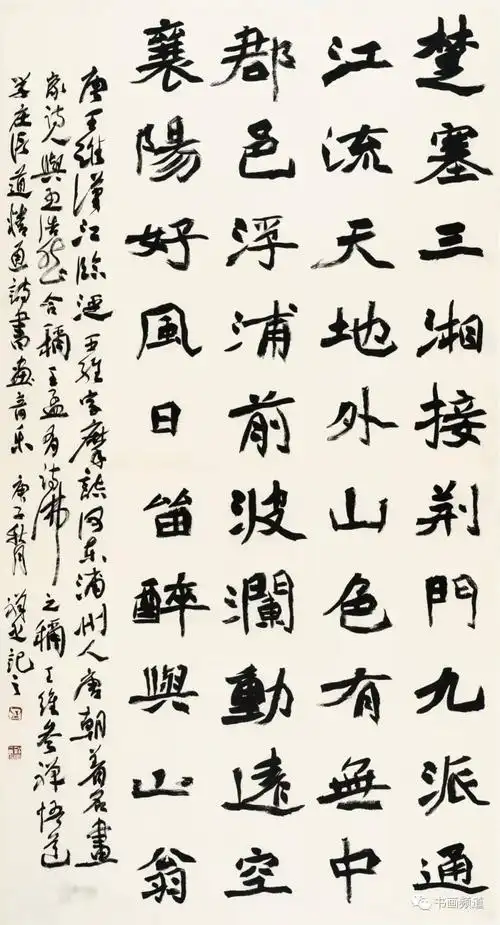 楚塞三湘接荆門九派通
江流天地外山色有無中
郡邑浮浦前波瀾動遠空
襄陽好風日留醉與山翁
唐王維漢江臨泛王維字摩詰河東蒲州人唐朝著名畫
家詩人與孟浩然合稱王孟有詩佛之稱王維參禪悟道
学庄信道精通詩書畫音乐庚子秋月記之
书画频道